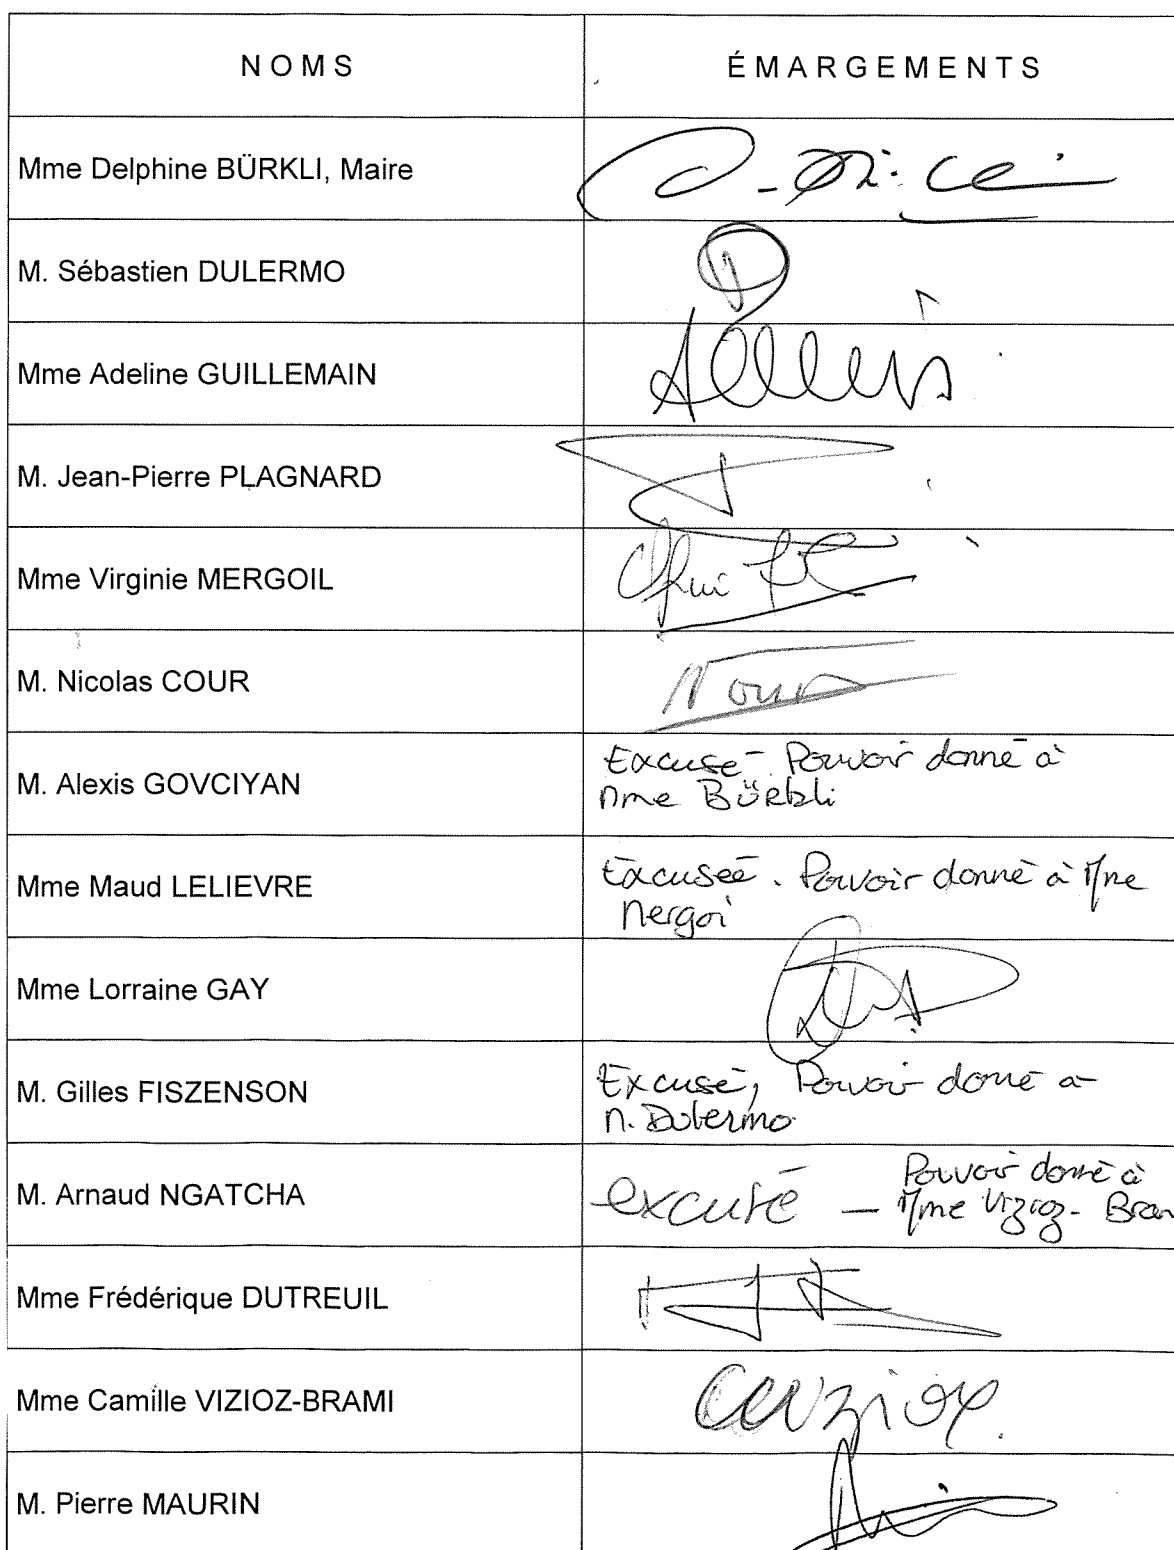 NOMS ÉMARGEMENTS
Mme Delphine BÜRKLI, Maire
M. Sébastien DULERMO
Mme Adeline GUILLEMAIN
M. Jean-Pierre PLAGNARD
Mme Virginie MERGOIL
M. Nicolas COUR
M. Alexis GOVCIYAN
Excusé - Pouvoir donné à
Mme Bürkli
Mme Maud LELIEVRE
Excusée. Pouvoir donné à Mme
Mergoi
Mme Lorraine GAY
M. Gilles FISZENSON
Excusé, Pouvoir donné à
M. Dulermo
M. Arnaud NGATCHA
excusé — Pouvoir donné à
Mme Vizioz-Bram
Mme Frédérique DUTREUIL
Mme Camille VIZIOZ-BRAMI
M. Pierre MAURIN